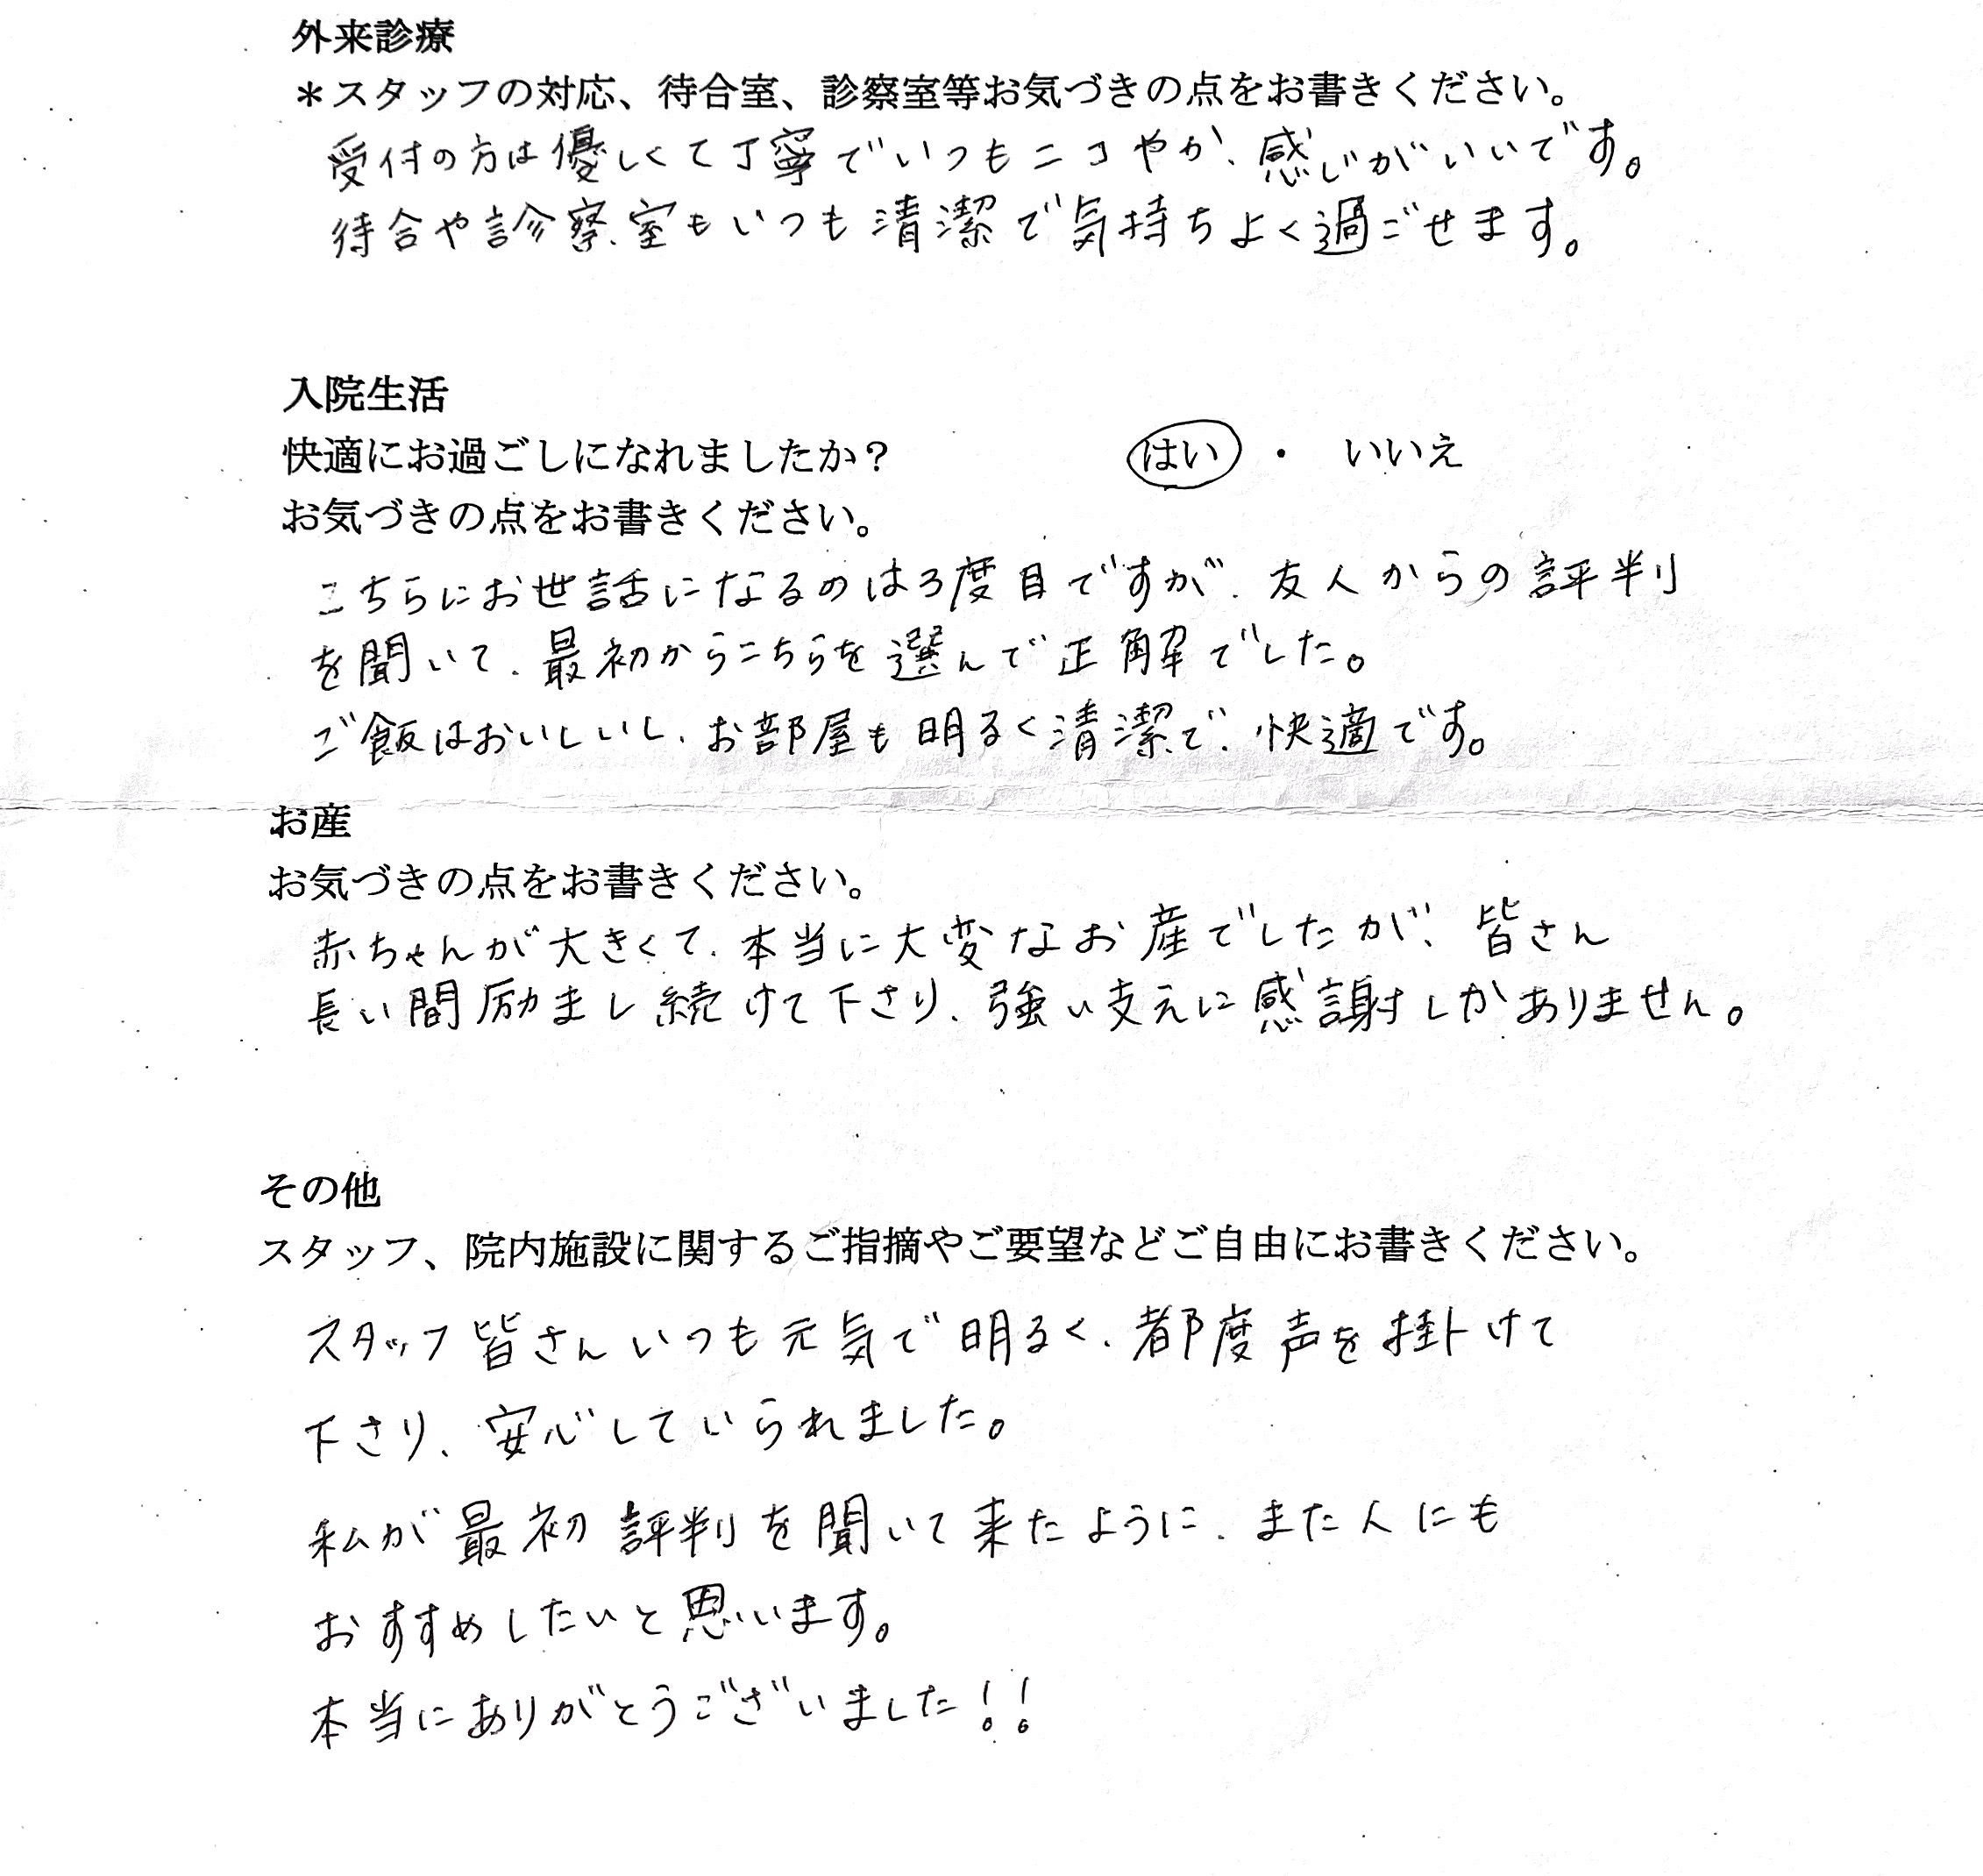 外来診療
＊スタッフの対応、待合室、診察室等お気づきの点をお書きください。
受付の方は優しくて丁寧でいつもニコやか、感じがいいです。
待合や診察室もいつも清潔で気持ちよく過ごせます。
入院生活
快適にお過ごしになれましたか？ はい ・ いいえ
お気づきの点をお書きください。
こちらにお世話になるのは3度目ですが、友人からの評判
を聞いて、最初からこちらを選んで正解でした。
ご飯はおいしいし、お部屋も明るく清潔で、快適です。
お産
お気づきの点をお書きください。
赤ちゃんが大きくて、本当に大変なお産でしたが、皆さん
長い間励まし続けて下さり、強い支えに感謝しかありません。
その他
スタッフ、院内施設に関するご指摘やご要望などご自由にお書きください。
スタッフ皆さんいつも元気で明るく、都度声を掛けて
下さり、安心していられました。
私が最初評判を聞いて来たように、また人にも
おすすめしたいと思います。
本当にありがとうございました！！